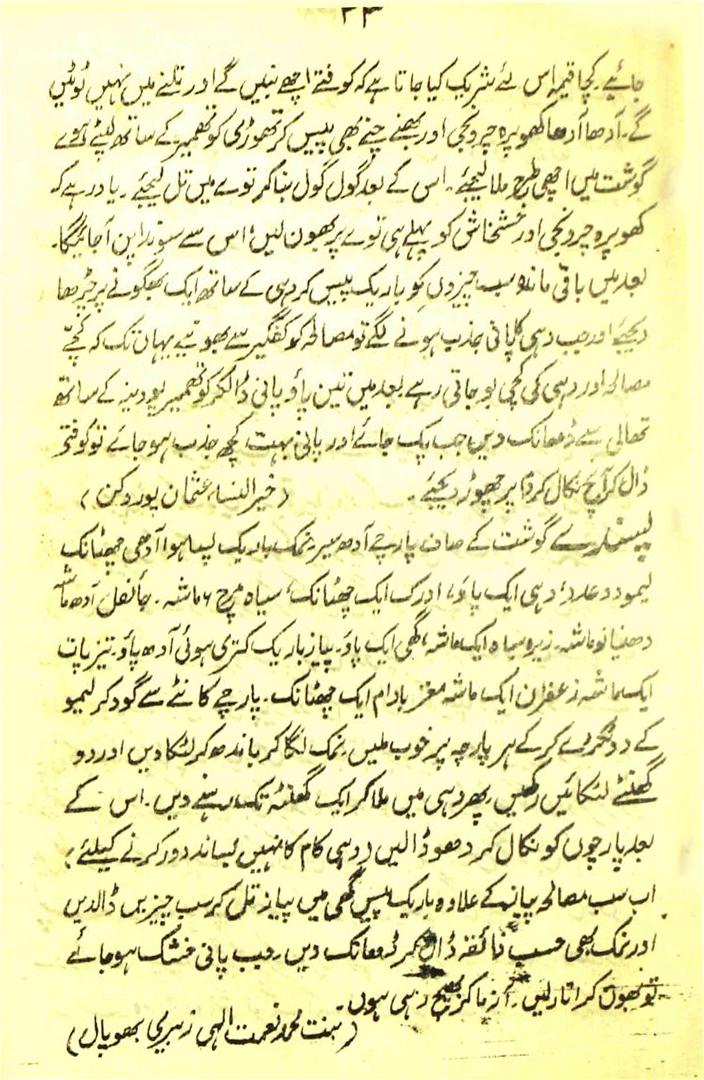 ۲۴
جائیے۔ کچا قیمہ اس لئے شریک کیا جاتا ہے کہ کوفتے اچھے بنیں گے اور تلنے میں نہیں ٹوٹیں
گے۔ آدھا آدھا کھوپرہ چرونجی اور بھنے چنے بھی پیس کر تھوڑی کوتھمیر کے ساتھ لپٹے ہوے
گوشت میں اچھی طرح ملا لیجئے۔ اس کے بعد گول گول بنا کر توے میں تل لیجئے۔ یاد رہے کہ
کھوپرہ چرونجی اور خشخاش کو پہلے ہی توے پر بھون لیں، اس سے سوندھا پن آجائیگا۔
بعد میں باقی ماندہ سب چیزوں کو باریک پیس کر دہی کے ساتھ ایک بھگونے پر چڑھا
دیجئے اور جب دہی کا پانی جذب ہونے لگے تو مصالحہ کو کفگیر سے بھونیے یہاں تک کہ کچے
مصالحہ اور دہی کی کچی بو جاتی رہے بعد میں تین پاؤ پانی ڈالکر کوتھمیر پودینہ کے ساتھ
تھالی سے ڈھانک دیں جب پک جائے اور پانی بہت کچھ جذب ہو جائے تو کوفتے
ڈال کر آنچ نکال کر دم پر چھوڑ دیجئے۔ (خیر النساء، عثمان پورہ دکن)
پسندے گوشت کے صاف پارچے آدھ سیر نمک باریک پسا ہوا آدھی چھٹانک
لیمو دو عدد، دہی ایک پاؤ، ادرک ایک چھٹانک، سیاہ مرچ ۶ ماشہ۔ جائفل آدھ ماشہ
دھنیا نو ماشہ۔ زیرہ سیاہ ایک ماشہ، گھی ایک پاؤ۔ پیاز باریک کتری ہوئی آدھ پاؤ۔ تیز پات
ایک ماشہ زعفران ایک ماشہ مغز بادام ایک چھٹانک۔ پارچے کانٹے سے گود کر لیمو
کے دو ٹکڑے کر کے ہر پارچہ پر خوب ملیں۔ نمک لگا کر باندھ کر لٹکا دیں اور دو
گھنٹے لٹکائیں رکھیں۔ پھر دہی میں ملا کر ایک گھنٹہ تک رہنے دیں۔ اس کے
بعد پارچوں کو نکال کر دھو ڈالیں (دہی کام کا نہیں بساند دور کرنے کیلئے)
اب سب مصالحہ پیاز کے علاوہ باریک پیس گھی میں پیاز تل کر سب چیزیں ڈالدیں
اور نمک بھی حسب ذائقہ ڈال کر ڈھانک دیں۔ جب پانی خشک ہو جائے
تو بھون کر اتار لیں۔ آزما کر بھیج رہی ہوں۔
(بنت محمد نعمت الٰہی زبیری بھوپال)